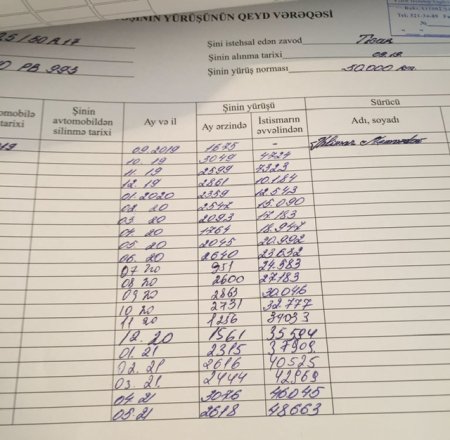 ŞİNİN YÜRÜŞÜNÜN QEYD VƏRƏQƏSİ
Şini istehsal edən zavod
Şinin alınma tarixi 09.19
Şinin yürüş norması 50.000 km
PB 993
tarixi
Şinin avtomobildən silinmə tarixi
Ay və il
Şinin yürüşü
Ay ərzində
İstismarın əvvəlindən
Sürücü
Adı, soyadı
09.2019 1675 -
10.19 3049 4724
11.19 2599 7323
12.19 2861 10.184
01.2020 2359 12.543
02 20 2547 15.090
03 20 2093 17.183
04 20 1764 18.947
05 20 2045 20.992
06 20 2640 23.632
07 20 951 24.583
08 20 2600 27.183
09 20 2863 30.046
10 20 2731 32.777
11 20 1256 34033
12.20 1561 35594
01.21 2315 37909
02.21 2616 40525
03.21 2444 42.969
04 21 3076 46045
05.21 2618 48663